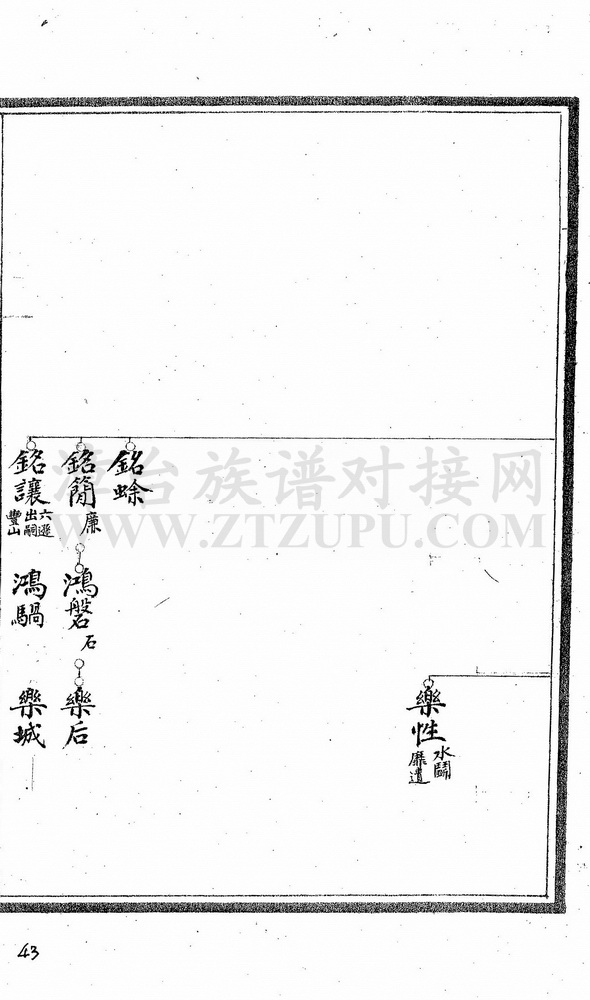 樂性
水鬪
靡遺
銘蜍
銘簡
廉
鴻磐
石
樂后
銘讓
六遜
出嗣
豐山
鴻騧
樂城
漳台族谱对接网
WWW.ZTZUPU.COM
43